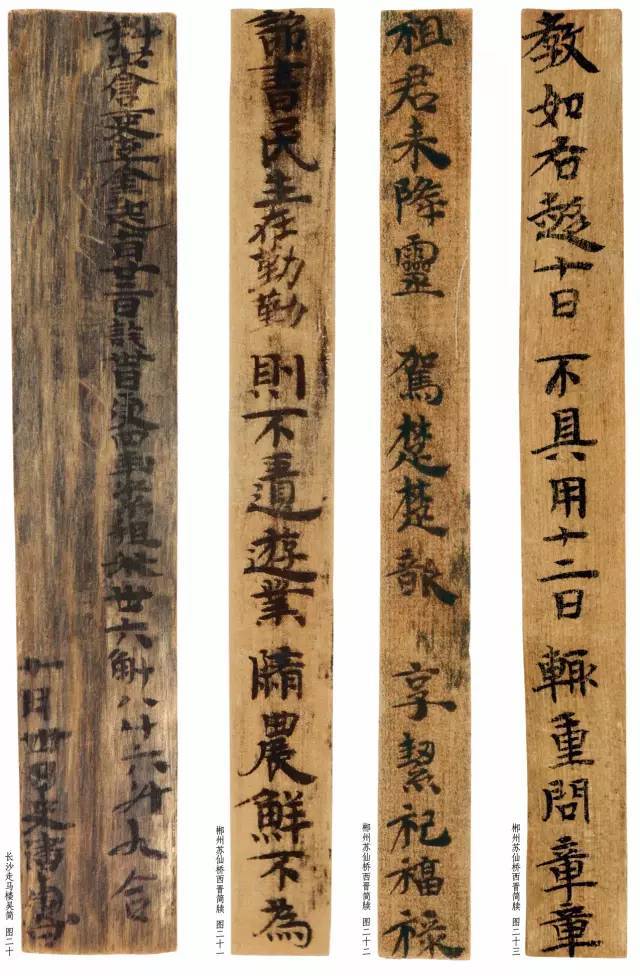 倉吏 起 月廿三日 卅日受 租米卅六斛八斗六升九合
月
长沙走马楼吴简 图二十
詔書民生在勤勤 則不匱遊業 隋農鮮不為
郴州苏仙桥西晋简牍 图二十一
祖君未降靈 駕楚楚歆 享絜祀福祿
郴州苏仙桥西晋简牍 图二十二
教如右愆十日 不具用十二日 輒重問章章
郴州苏仙桥西晋简牍 图二十三